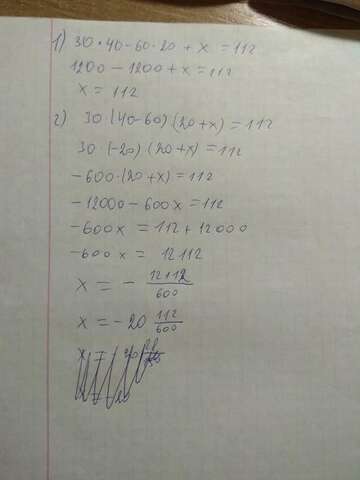 1) 30 · 40 - 60 · 20 + x = 112
1200 - 1200 + x = 112
x = 112
2) 30 (40-60) (20+x) = 112
30 · (-20) (20+x) = 112
-600 · (20+x) = 112
-12000 - 600x = 112
-600x = 112 + 12000
-600x = 12112
x = - 12112/600
x = -20 112/600